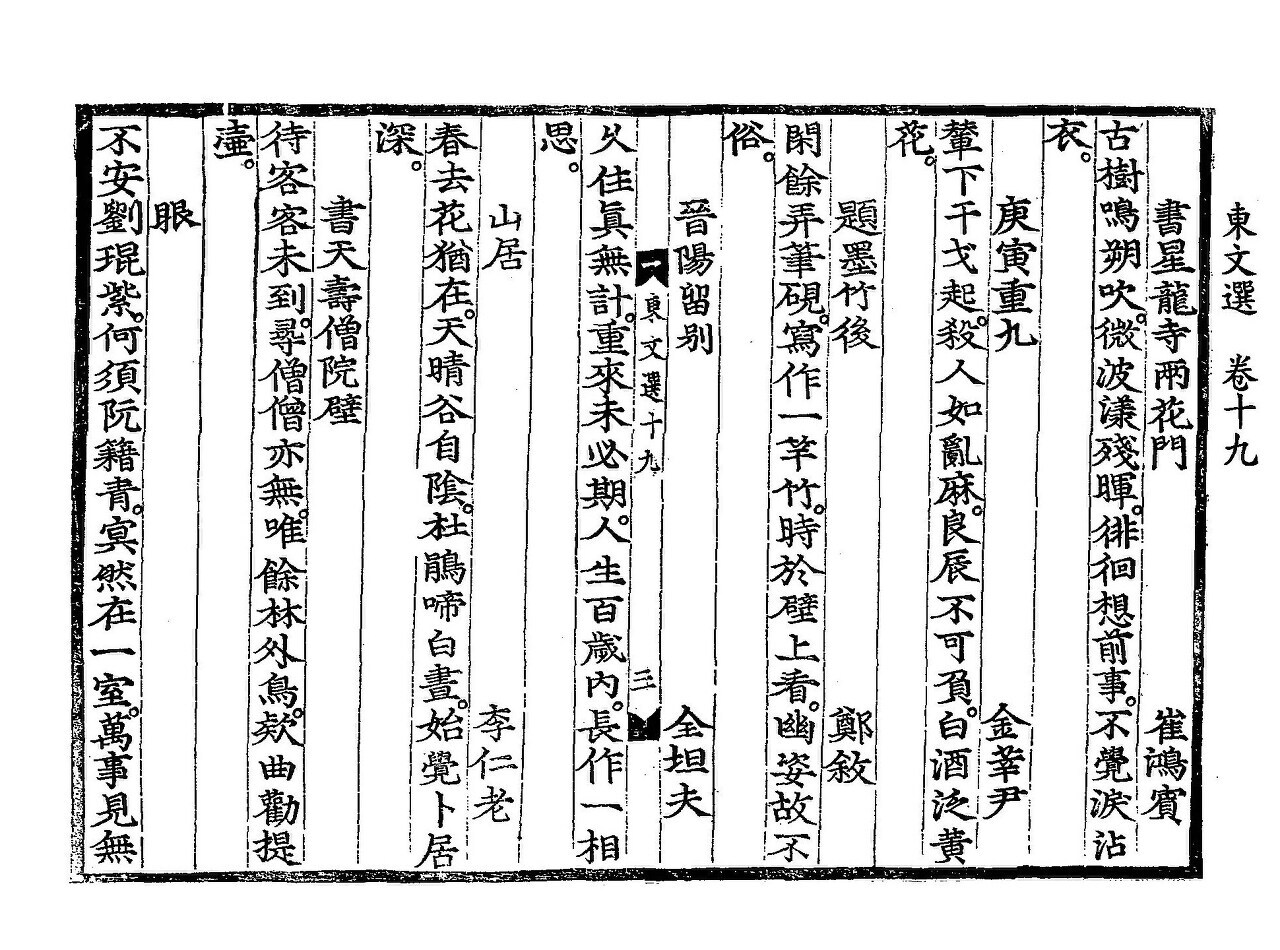 東文選 卷十九
書星龍寺雨花門 崔鴻賓
古樹鳴朔吹。微波漾殘暉。徘徊想前事。不覺淚沾
衣。
庚寅重九 金莘尹
輦下干戈起。殺人如亂麻。良辰不可負。白酒泛黃
花。
題墨竹後 鄭敘
閑餘弄筆硯。寫作一竿竹。時於壁上看。幽姿故不
俗。
晉陽留別 全坦夫
東文選十九 三
久住眞無計。重來未必期。人生百歲內。長作一相
思。
山居 李仁老
春去花猶在。天晴谷自陰。杜鵑啼白晝。始覺卜居
深。
書天壽僧院壁
待客客未到。尋僧僧亦無。唯餘林外鳥。欵曲勸提
壺。
眼
不安劉琨紫。何須阮籍青。冥然在一室。萬事見無